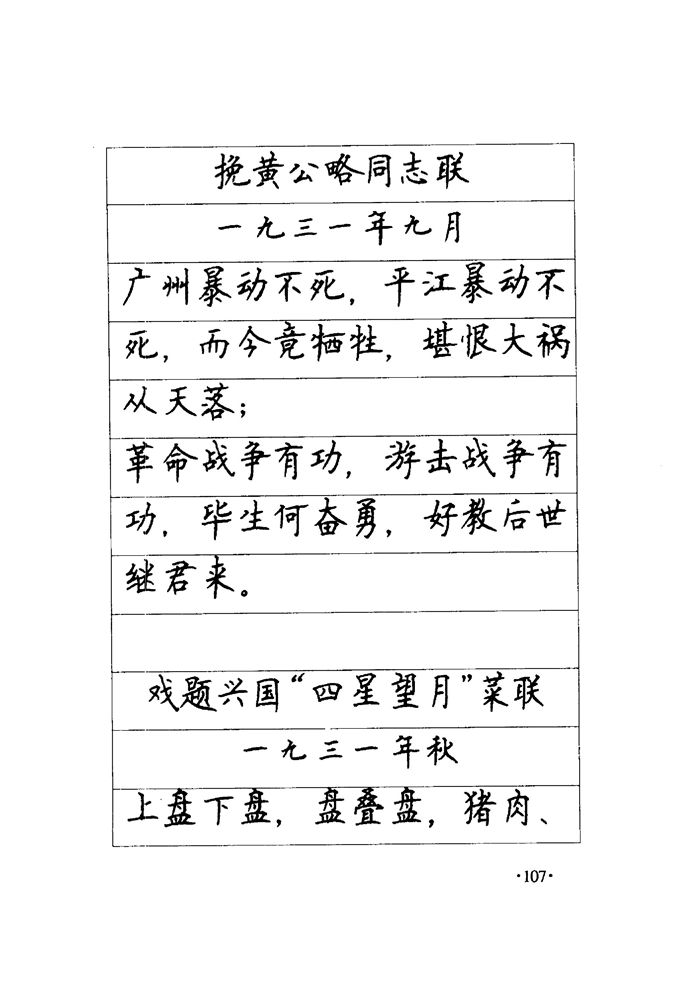 挽黄公略同志联
一九三一年九月
广州暴动不死，平江暴动不
死，而今竟牺牲，堪恨大祸
从天落；
革命战争有功，游击战争有
功，毕生何奋勇，好教后世
继君来。
戏题兴国“四星望月”菜联
一九三一年秋
上盘下盘，盘叠盘，猪肉、
·107·